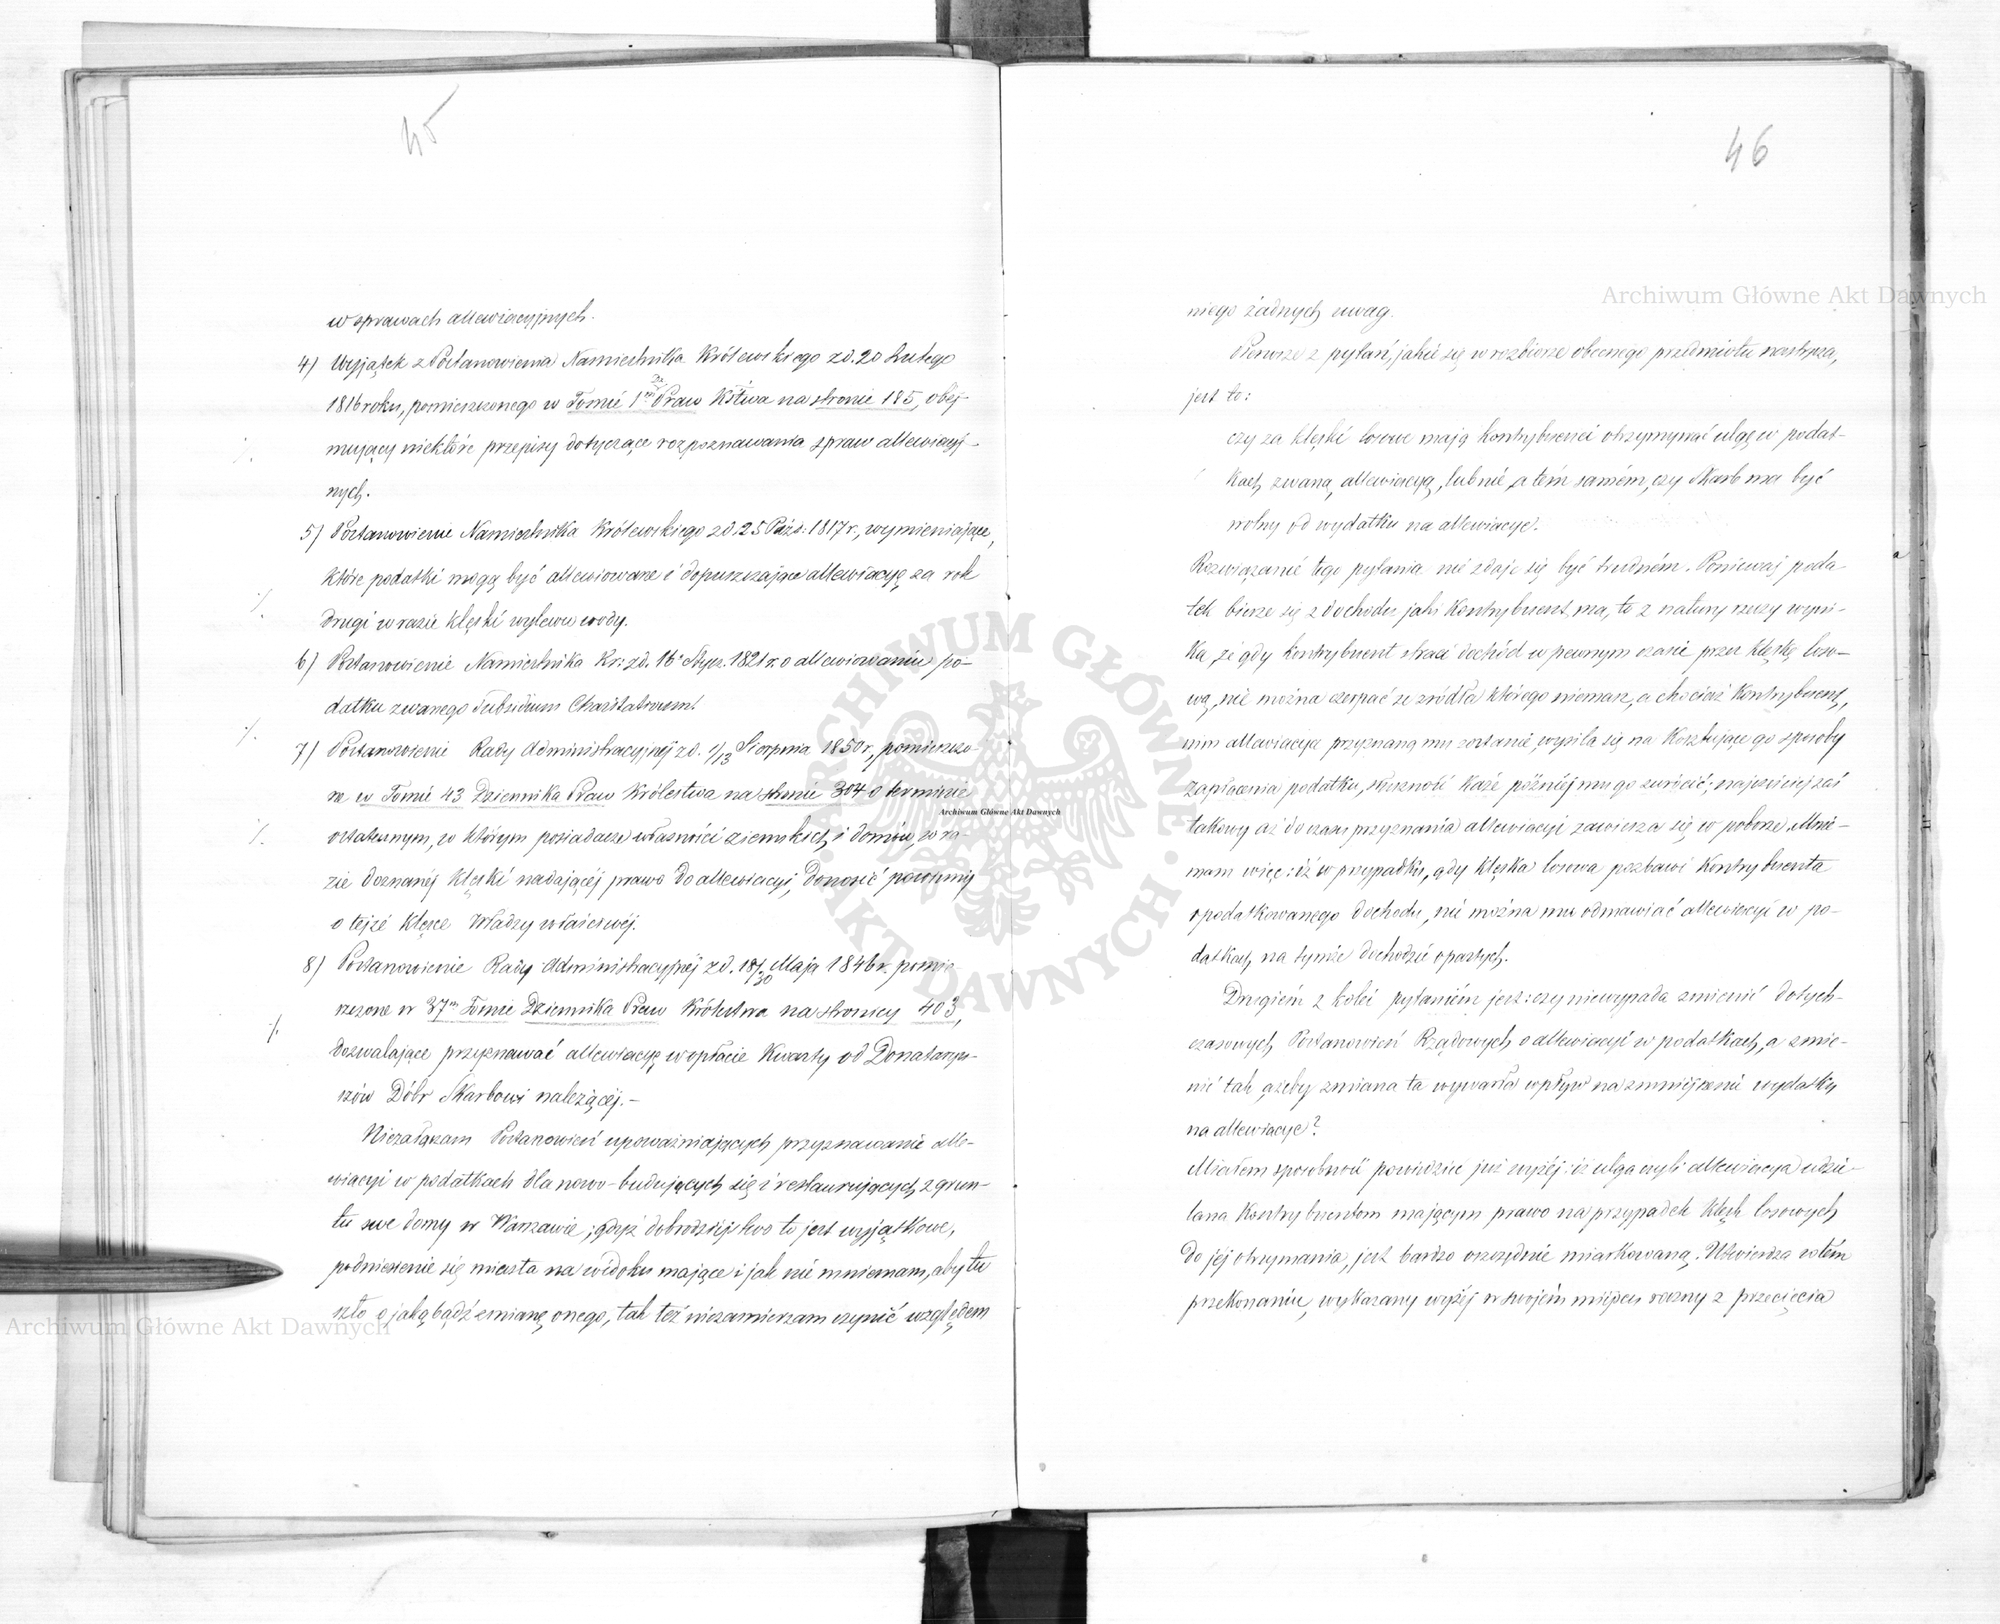 45
w sprawach allewiacyjnych.
4) Wyjątek z Postanowienia Namiestnika Królewskiego z d. 20 Lutego
1816 roku, pomieszczonego w Tomie 1m Praw Kstwa na stronie 185, obej-
mujący niektóre przepisy dotyczące rozpoznawania spraw allewiacyj-
nych.
5) Postanowienie Namiestnika Królewskiego z d. 25 Paźd: 1817 r., wymieniające,
które podatki mogą być allewiowane i dopuszczające allewiacyę za rok
drugi w razie klęski wylewu wody.
6) Postanowienie Namiestnika Kr: z d. 16 Stycz. 1821 r. o allewiowaniu po-
datku zwanego Subsidium Charitativum.
7) Postanowienie Rady Administracyjnéj z d. 1/13 Sierpnia 1850 r., pomieszczo-
ne w Tomie 43 Dziennika Praw Królestwa na stronie 304 o terminie
ostatecznym, w którym posiadacze własności ziemskich i domów, w ra-
zie doznanéj klęski nadającéj prawo do allewiacyi, donosić powinni
o tejże klęsce Władzy właściwéj.
8) Postanowienie Rady Administracyjnéj z d. 18/30 Maja 1846 r. pomie-
szczone w 37m Tomie Dziennika Praw Królestwa na stronicy 403,
dozwalające przyznawać allewiacyę w opłacie Kwarty od Donataryu-
szów Dóbr Skarbowi należącéj.–
Niezałączam Postanowień upoważniających przyznawanie alle-
wiacyi w podatkach dla nowo-budujących się i restaurujących z grun-
tu swe domy w Warszawie; gdyż dobrodziejstwo to jest wyjątkowe,
podniesienie się miasta na widoku mające i jak nie mniemam, aby tu
szło o jakąbądź zmianę onego, tak też niezamierzam czynić względem
46
niego żadnych uwag.
Pierwsze z pytań, jakie się w rozbiorze obecnego przedmiotu nastręcza,
jest to:
czy za klęski losowe mają kontrybuenci otrzymywać ulgę w podat-
kach zwaną allewiacyą, lub nie, a tém samém, czy Skarb ma być
wolny od wydatku na allewiacye.
Rozwiązanie tego pytania nie zdaje się być trudném. Ponieważ poda-
tek bierze się z dochodu jaki kontrybuent ma, to z natury rzeczy wyni-
ka, że gdy kontrybuent straci dochód w pewnym czasie przez klęskę loso-
wą, nie można czerpać ze źródła którego niemasz, a chociaż kontrybuent,
nim allewiacya przyznaną mu zostanie, wysila się na kosztujące go sposoby
zapłacenia podatku, słuszność każe później mu go zwrócić; najczęściej zaś
takowy aż do czasu przyznania allewiacyi zawiesza się w poborze. Mnie-
mam więc: iż w przypadku, gdy klęska losowa pozbawi kontrybuenta
opodatkowanego dochodu, nie można mu odmawiać allewiacyi w po-
datkach na tymże dochodzie opartych.
Drugiém z kolei pytaniem jest: czy niewypada zmienić dotych-
czasowych Postanowień Rządowych o allewiacyi w podatkach, a zmie-
nić tak ażeby zmiana ta wywarła wpływ na zmniejszenie wydatku
na allewiacye?
Miałem sposobność powiedzieć już wyżéj: iż ulga czyli allewiacya udzie-
lana kontrybuentom mającym prawo na przypadek klęsk losowych
do jéj otrzymania, jest bardzo oszczędnie miarkowaną. Utwierdza w tém
przekonaniu, wykazany wyżéj w swojém miejscu roczny z przecięcia
Archiwum Główne Akt Dawnych
Archiwum Główne Akt Dawnych
Archiwum Główne Akt Dawnych
ARCHIWUM GŁÓWNE AKT DAWNYCH